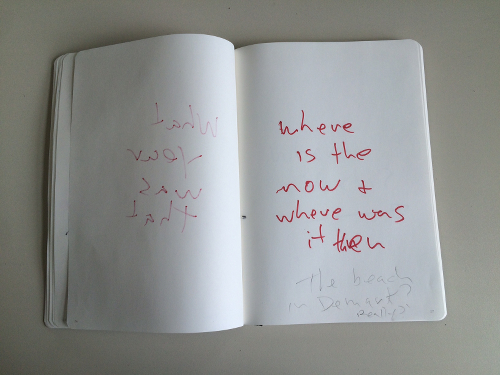 What
was
that
where
is the
now &
where was
it then
The beach
in
Really?